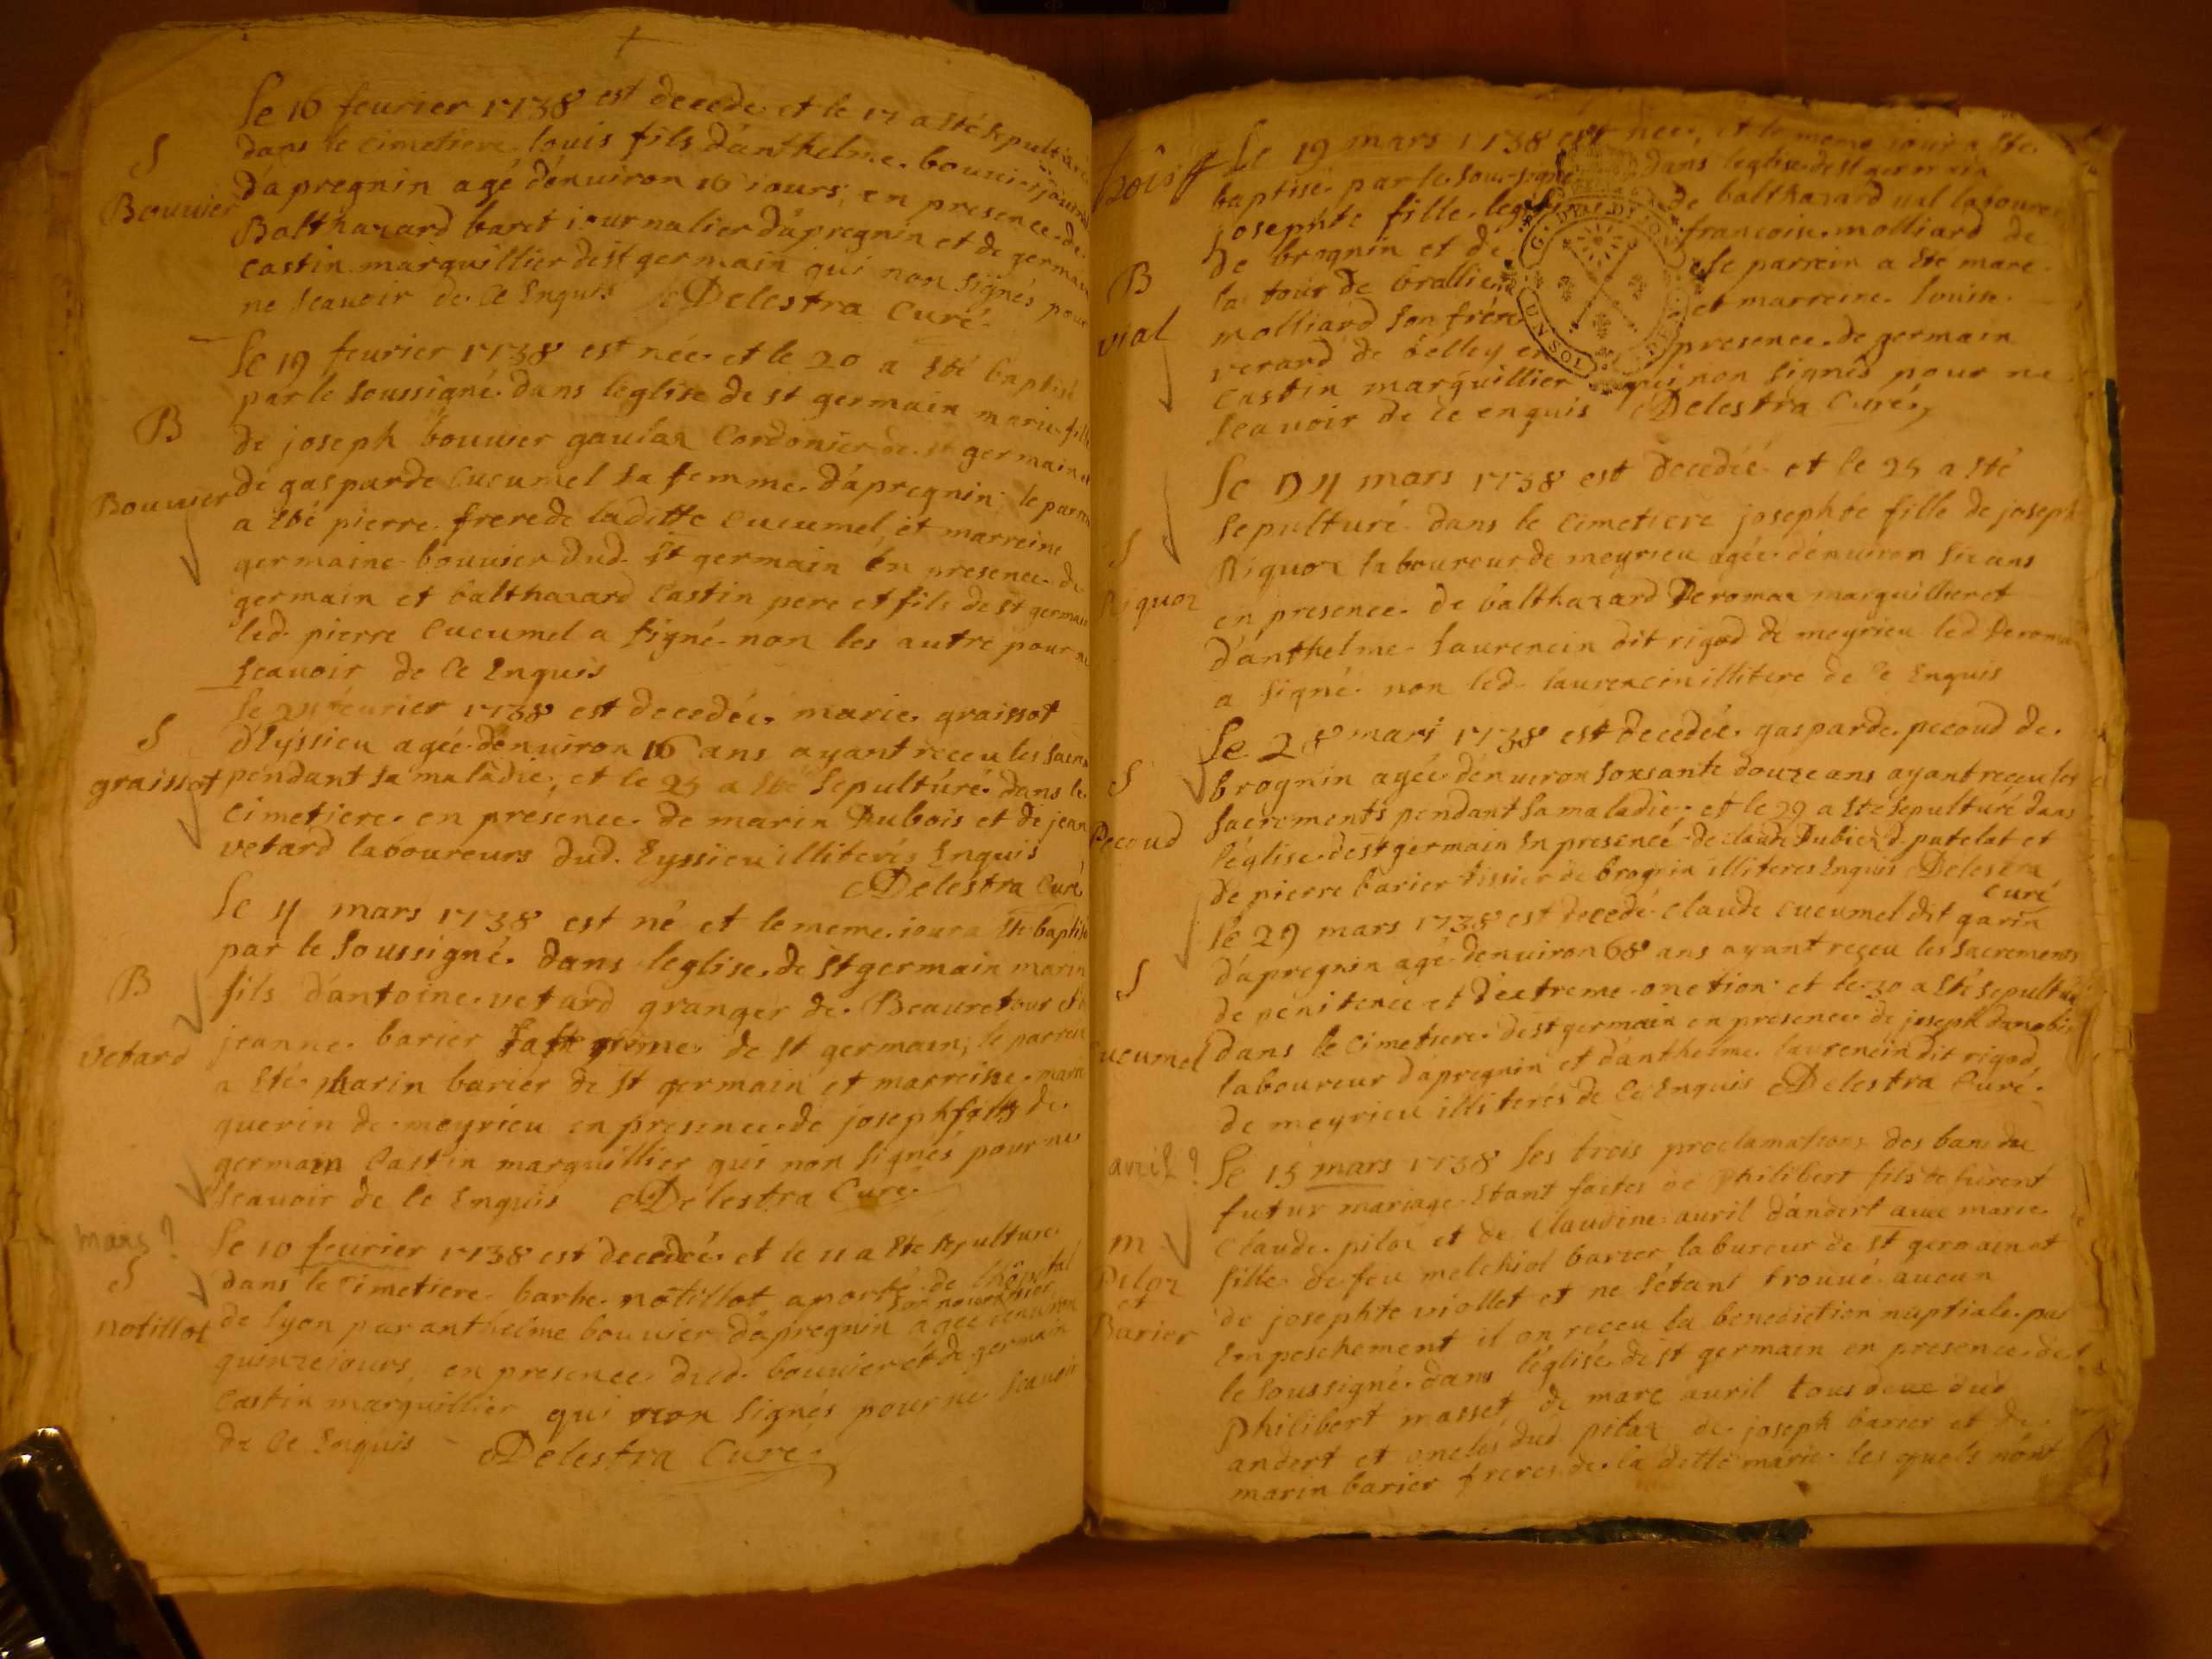 Le 16 feurier 1738 est decedé et le 17 a sté sepulturé
dans le cimetiere louis fils d'anthelme bouuier journal
S
Bouuier
d'apregnin agé d'enuiron 16 iours, en presence de
Balthazard baret iournalier d'apregnin et de germain
castin marguillier de st germain qui non signés pour
ne scauoir de ce Enquis Delestra Curé
Le 19 feurier 1738 est née et le 20 a sté baptisé
par le soussigné dans leglise de st germain marie fille
B
de joseph bouuier gaulaz Cordonier de st germain et
Bouuier
de gasparde cucumel sa femme d'apregnin; le parrein
a sté pierre frere de laditte Cucumel, et marreine
germaine bouuier dud. st germain En presence de
germain et balthazard Castin pere et fils de st germain
led. pierre Cucumel a signé non les autre pour ne
scauoir de ce Enquis
Le 24 feurier 1738 est decedée marie graissot
S
graissot
d'Eyssieu agée d'enuiron 16 ans ayant receu les sacrem
pendant sa maladie, et le 25 a sté sepulturé dans le
cimetiere en presence de marin Dubois et de jean
vetard laboureurs dud. Eyssieu illiterés Enquis
Delestra Curé
Le 4 mars 1738 est né et le meme iour a sté baptisé
par le soussigné dans leglise de st germain marin
B
fils d'antoine vetard granger de Beauretour et de
vetard
jeanne barier sa femme de st germain, le parrein
a sté marin barier de st germain et marreine marie
guerin de meyrieu en presence de joseph fils de
germain Castin marguillier qui non signés pour ne
scauoir de ce Enquis Delestra Curé
mars ?
Le 10 feurier 1738 est decedée et le 11 a sté sepulture
S
dans le Cimetiere barbe notillot aporté de lhôpital
notillot
de lyon par anthelme bouuier d'apregnin son nourrissier agée denuiron
quinze iours, en presence dud. bouuier et de germain
Castin marguillier qui non signés pour ne scauoir
de ce Enquis Delestra Curé
Le 19 mars 1738 est née, et le meme iour a sté
baptisé par le soussigné dans leglise de st germain
josephte fille legitime de balthazard uial laboureur
de brognin et de francoise molliard de
B
vial
la tour de brallieu le parrein a sté marc
molliard son frere et marreine louise
verard de belley en presence de germain
Castin marguillier qui non signés pour ne
scauoir de ce enquis Delestra Curé
Le 24 mars 1738 est decedée et le 25 a sté
sepulturé dans le Cimetiere josephte fille de joseph
S
Riquoz
Riquoz laboureur de meyrieu agée d'enuiron six ans
en presence de balthazard Deromaz marguillier et
d'anthelme laurencin dit rigod de meyrieu led Deromaz
a signé non led laurencin illitere de ce Enquis
Le 28 mars 1738 est decedée gasparde pecoud de
S
brognin agée d'enuiron soxsante douze ans ayant receu les
Pecoud
sacrements pendant sa maladie; et le 29 a sté sepulturé dans
l'église de st germain En presence de claude Dubiez d. patelat et
de pierre barier tissier de brognin illiteres Enquis Delestra
curé
Le 29 mars 1738 est decedé claude cucumel dit garin
S
d'apregnin agé denuiron 68 ans ayant reçeu les sacrements
de penitence et d'extreme onction et le 30 a sté sepulturé
Cucumel
dans le Cimetiere de st germain en presence de joseph
laboureur d'apregnin et d'anthelme laurencin dit rigod
de meyrieu illiterés de ce Enquis Delestra Curé
auril ?
Le 15 mars 1738 les trois proclamations des bans du
futur mariage Etant faites de Philibert fils de
m
Piloz
et
Barier
Claude piloz et de Claudine auril d'andert auec marie
fille de feu melchiol barier labureur de st germain et
de josephte viollet et ne s'étant trouué aucun
Empeschement il on reçeu la benediction nuptiale par
le soussigné dans l'église de st germain en presence de
Philibert masset de marc auril tous deux dud
andert et oncles dud. piloz de joseph barier et de
marin barier freres de la ditte marie les quels n'ont